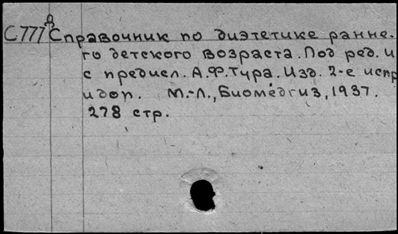 С777 Справочник по диэтетике ранне-
го детского возраста. Под ред. и
с предисл. А.Ф.Тура. Изд. 2-е испр
и доп. М.-Л., Биомедгиз, 1937.
278 стр.